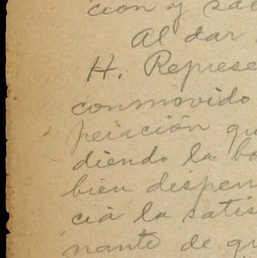 cion y sac
Al dar
H. Represe
conmovido
peiación qu
diendo la bo
bien dispen
cia la satis
nante de qu